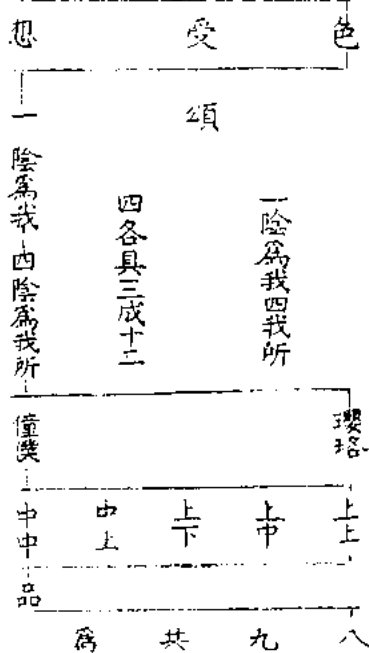 色 受 想
頌
一陰爲我四我所
四各具三成十二
一陰爲我四陰爲我所
瓔珞
僮僕
上上
上中
上下
中上
中中
品
八 九 共 爲